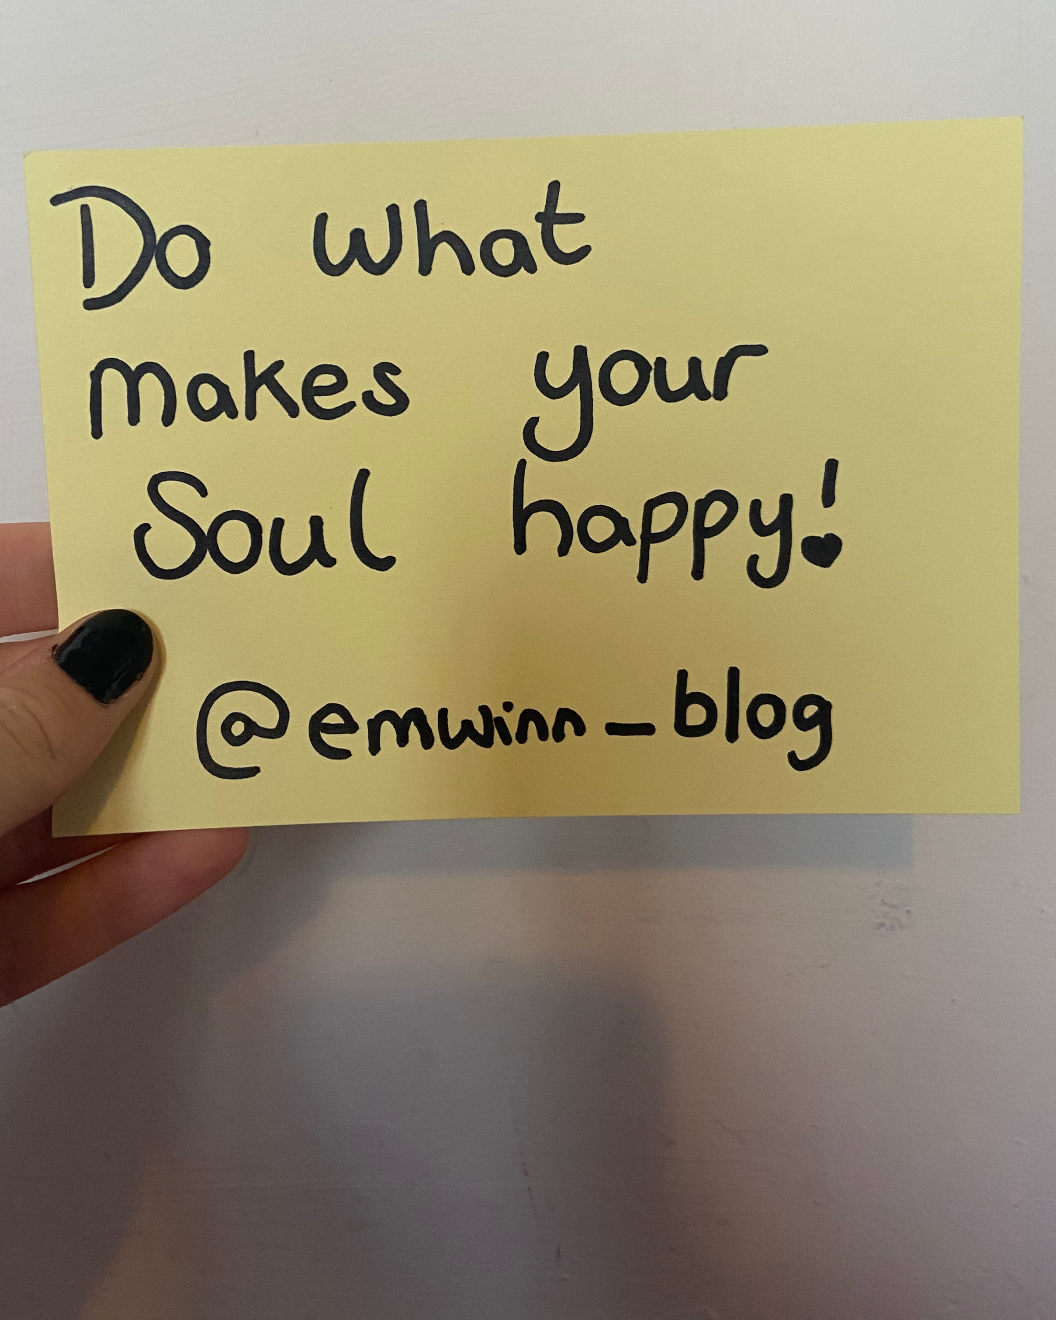 Do what
makes your
Soul happy!
@emwinn_blog